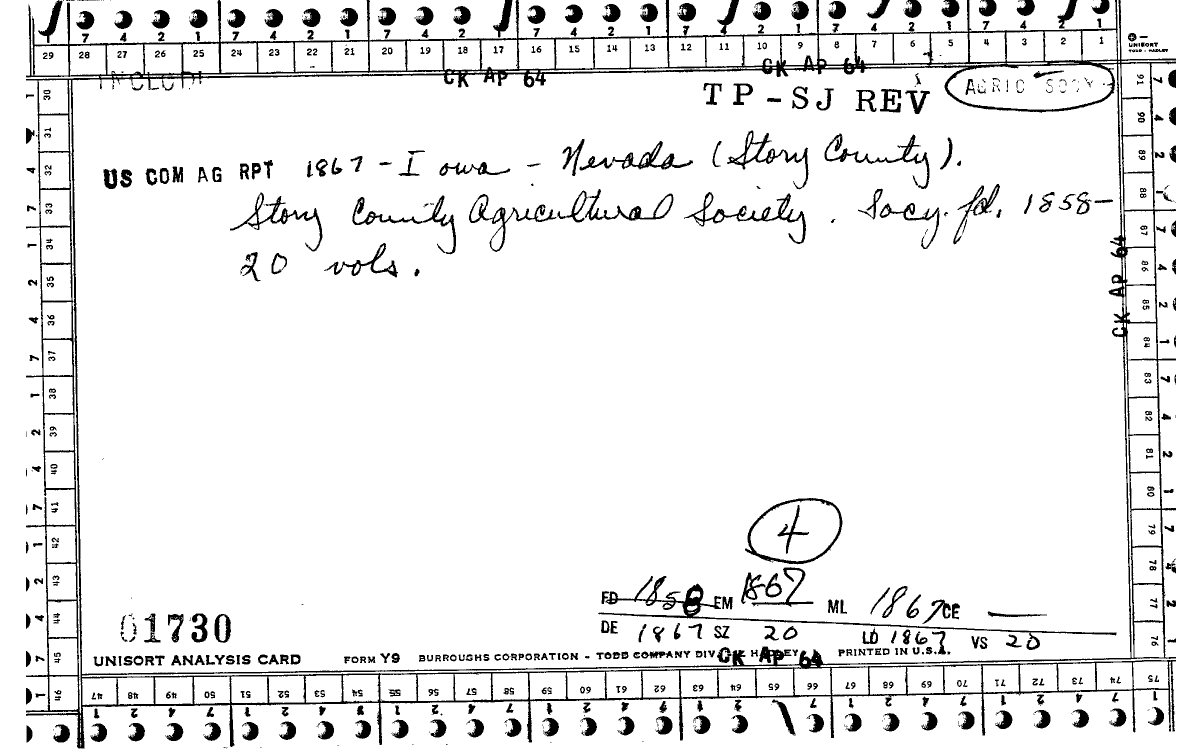 29 28 27 26 25 24 23 22 21 20 19 18 17 16 15 14 13 12 11 10 9 8 7 6 5 4 3 2 1
UNISORT
TODD - HADLEY
CK AP 64 CK AP 64
TP-SJ REV AGRIC SOCY
US COM AG RPT 1867 - Iowa - Nevada (Story County).
Story County Agricultural Society. Socy. fd. 1858-
20 vols.
CK AP 64
4
FD 1858 EM 1867 ML 1867 CE —
DE 1867 SZ 20 LD 1867 VS 20
01730
UNISORT ANALYSIS CARD FORM Y9 BURROUGHS CORPORATION - TODD COMPANY DIV. PRINTED IN U.S.A.
CK AP 64
30 31 32 33 34 35 36 37 38 39 40 41 42 43 44 45 46
91 90 89 88 87 86 85 84 83 82 81 80 79 78 77 76
47 48 49 50 51 52 53 54 55 56 57 58 59 60 61 62 63 64 65 66 67 68 69 70 71 72 73 74 75